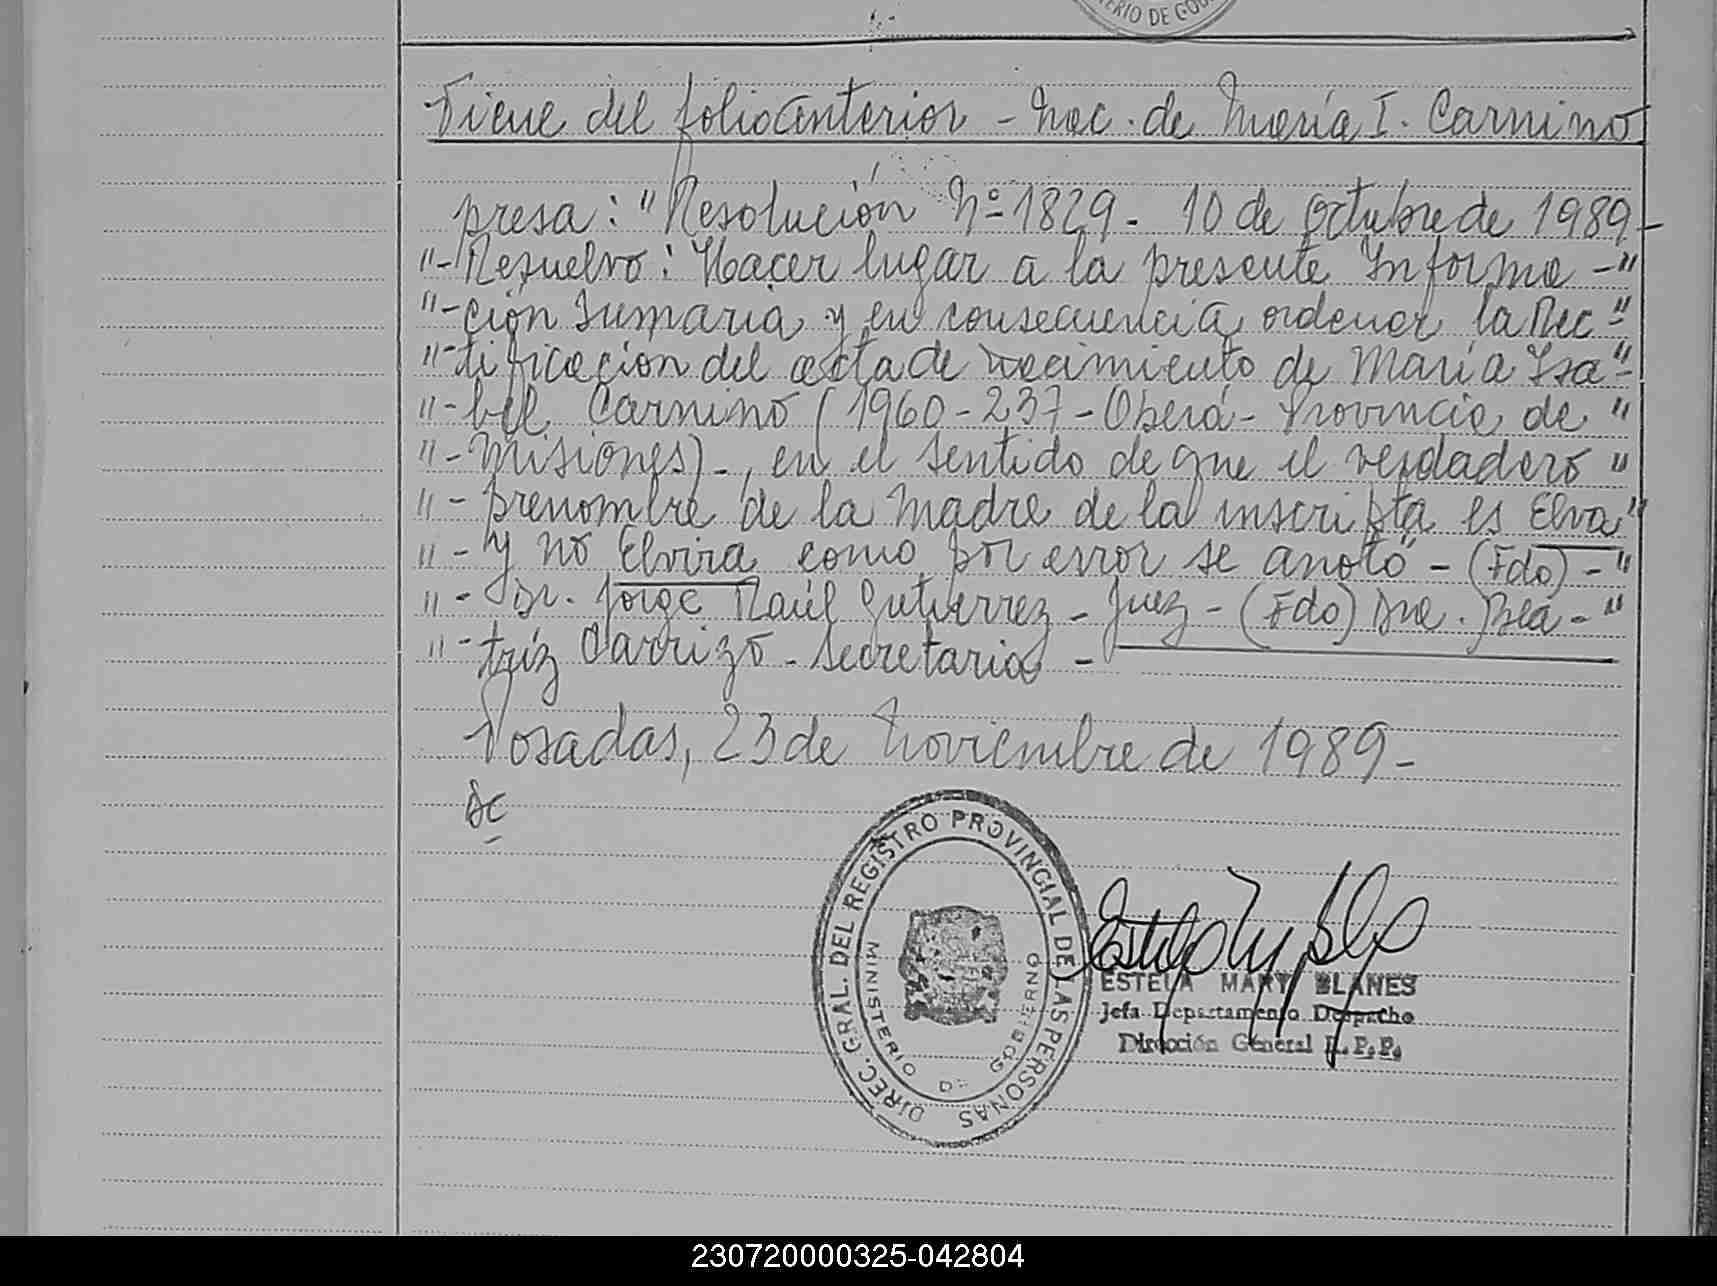 ERIO DE GOB
Viene del folio anterior - Nac. de María I. Carnino
presa: "Resolución Nº 1829 - 10 de Octubre de 1989 -
"- Resuelvo: Hacer lugar a la presente Informa - "
"- ción Sumaria y en consecuencia ordenar la Rec - "
"- tificación del acta de nacimiento de María Isa - "
"- bel Carnino (1960 - 237 - Oberá - Provincia de "
"- Misiones) -, en el sentido de que el verdadero "
"- prenombre de la madre de la inscripta es Elva "
"- y no Elvira como por error se anotó - (Fdo) - "
"- Dr. Jorge Raúl Gutierrez - Juez - (Fdo) Dra. Bea - "
"- tríz Carrizo - Secretaria -
Posadas, 23 de Noviembre de 1989 -
DIREC. GRAL. DEL REGISTRO PROVINCIAL DE LAS PERSONAS
MINISTERIO DE GOBIERNO
ESTELA MARY BLANES
Jefa Departamento Despacho
Dirección General R. P. P.
230720000325-042804